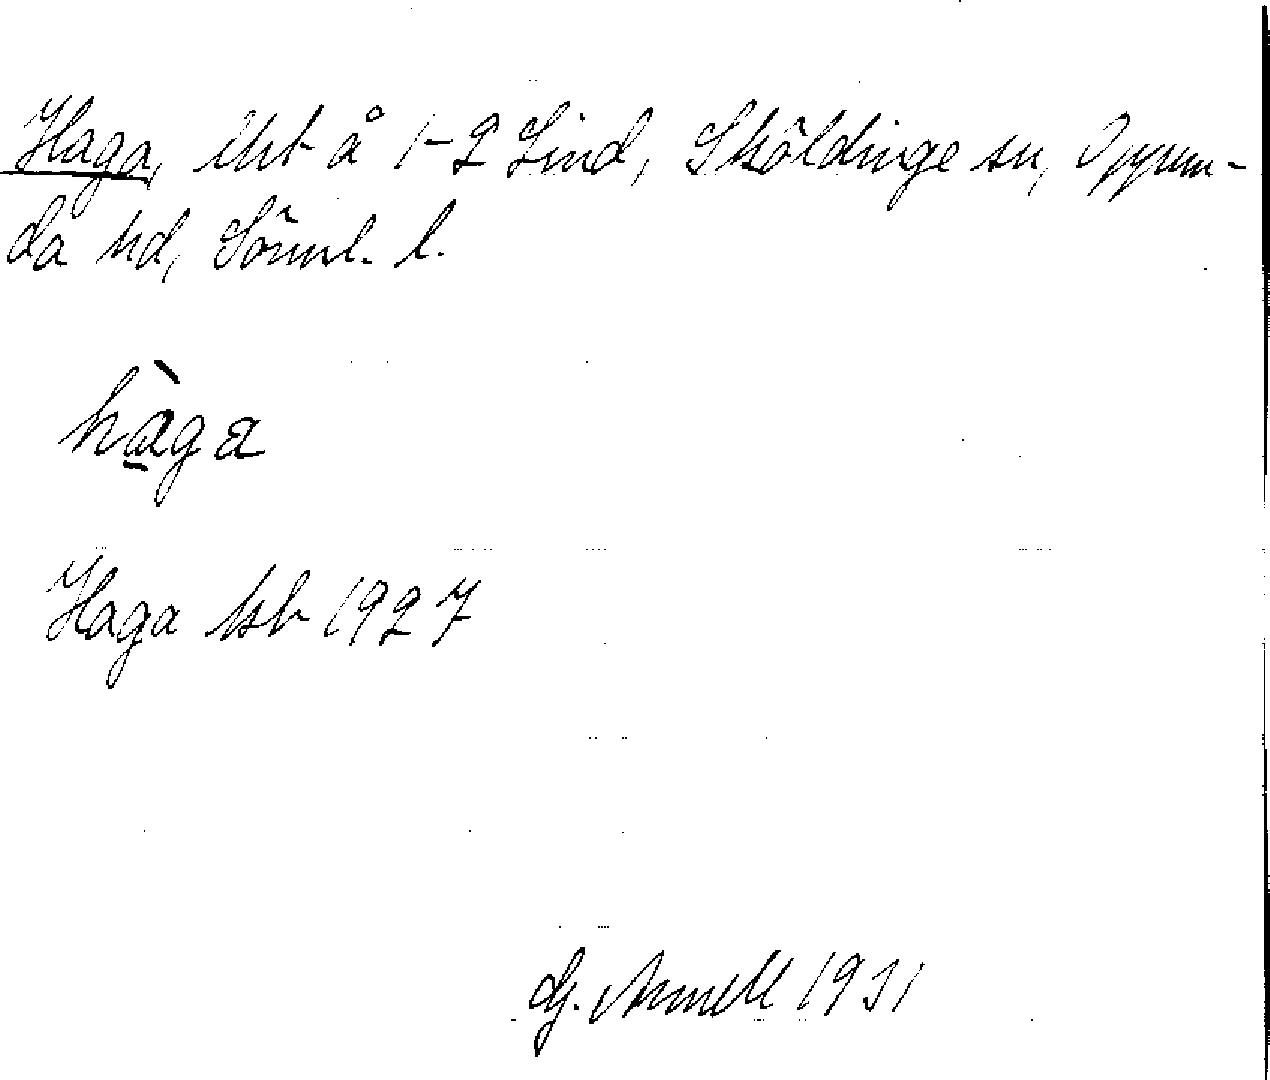 Haga, lht å 1-2 Lind, Sköldinge sn, Oppun-
da hd, Söml. l.
hàga
Haga ksb 1927
G. Annell 1931